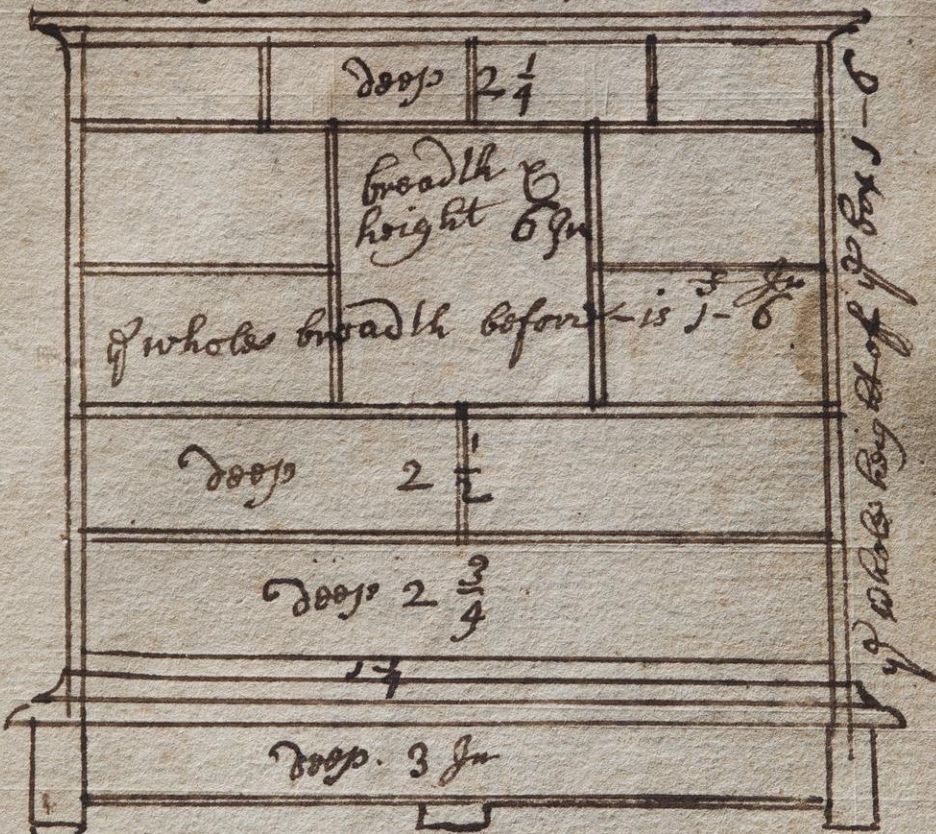 deep 2 1/4
breadth &
height 6 In
ye whole breadth before is 1 - 6
deep 2 1/2
deep 2 3/4
deep. 3 In
ye whole height of ye box 1 - 6